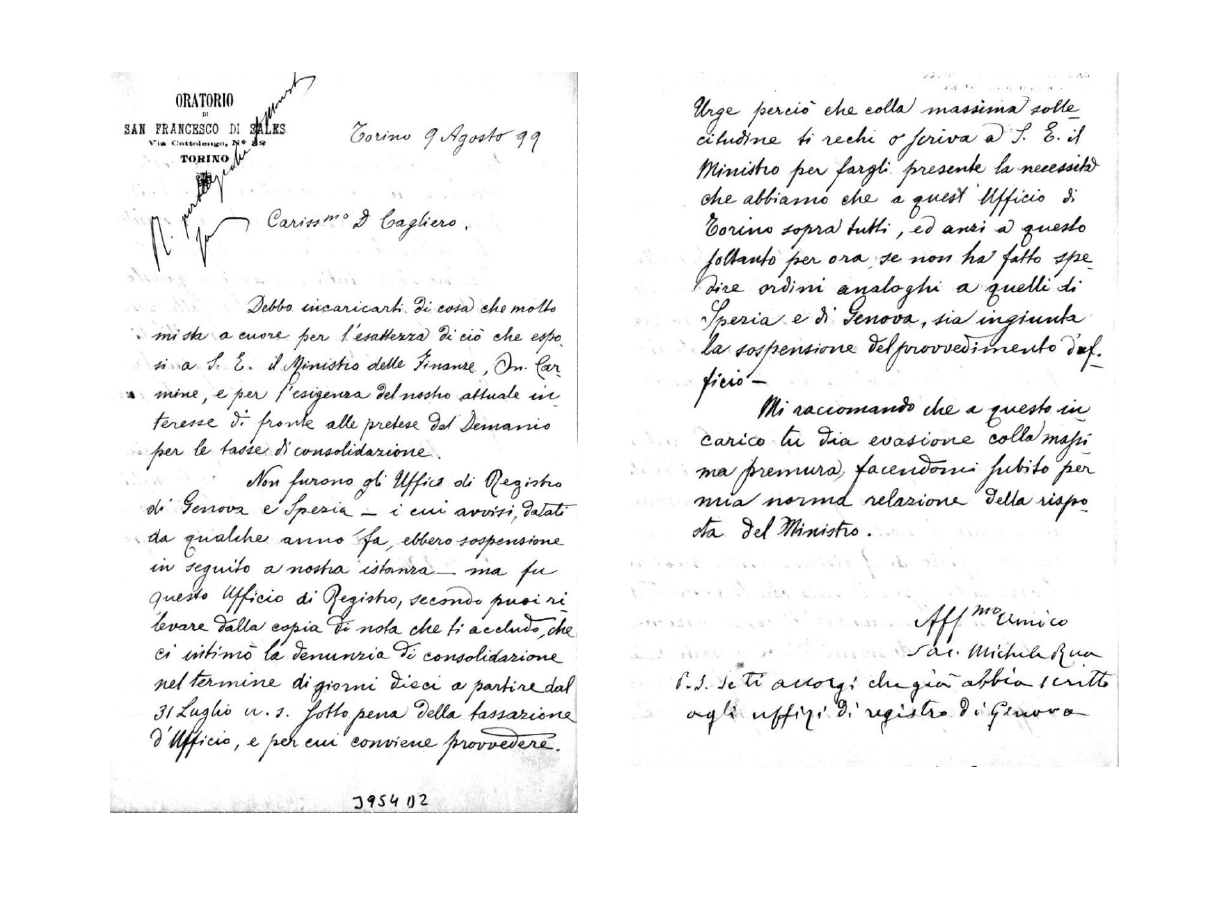 ORATORIO
DI
SAN FRANCESCO DI SALES
Via Cottolengo, N° 32
TORINO
Torino 9 Agosto 99
R.
Cariss.mo D Cagliero.
Debbo incaricarti di cosa che molto
mi sta a cuore per l'esattezza di ciò che espo
si a S. E. il Ministro delle Finanze, On. Car-
mine, e per l'esigenza del nostro attuale in-
teresse di fronte alle pretese del Demanio
per le tasse di consolidazione.
Non furono gli Uffici di Registro
di Genova e Spezia — i cui avvisi, datati
da qualche anno fa, ebbero sospensione
in seguito a nostra istanza — ma fu
questo Ufficio di Registro, secondo puoi ri-
levare dalla copia di nota che ti accludo, che
ci intimò la denunzia di consolidazione
nel termine di giorni dieci a partire dal
31 Luglio u. s. sotto pena della tassazione
d'Ufficio, e per cui conviene provvedere.
3954 D2
Urge perciò che colla massima solle-
citudine ti rechi o scriva a S. E. il
Ministro per fargli presente la necessità
che abbiamo che a quest' Ufficio di
Torino sopra tutti, ed anzi a questo
soltanto per ora, se non ha fatto spe-
dire ordini analoghi a quelli di
Spezia e di Genova, sia ingiunta
la sospensione del provvedimento d'uf-
ficio —
Mi raccomando che a questo in
carico tu dia evasione colla massi
ma premura, facendomi subito per
mia norma relazione della rispo-
sta del Ministro.
Aff.mo Amico
Sac. Michele Rua
P. S. Se ti accorgi che già abbia scritto
agli uffizi di registro di Genova